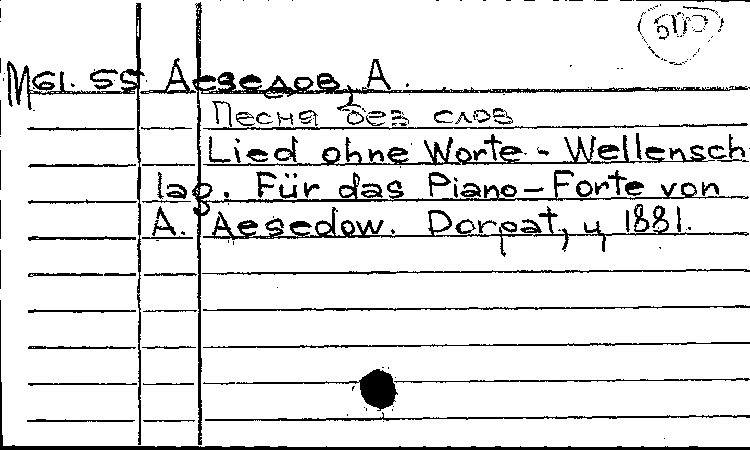 М61.55 Аезедов, А.
Песня без слов
Lied ohne Worte - Wellensch
lag. Für das Piano-Forte von
A. Aesedow. Dorpat, ц 1881.